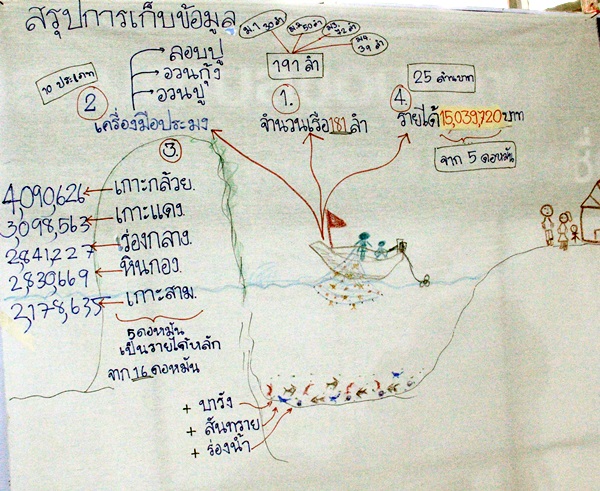 สรุปการเก็บข้อมูล
ม.1 30 ลำ
50 ลำ
ม.3 72 ลำ
39 ลำ
191 ลำ
ลอบปู
อวนกุ้ง
อวนปู
10 ประเภท
2
เครื่องมือประมง
1.
จำนวนเรือ 181 ลำ
25 ล้านบาท
4.
รายได้ 15,039,720 บาท
จาก 5 ดอหมัน
3.
4,090,626 เกาะกล้วย.
3,098,563 เกาะแดง.
2,841,227 ร่องกลาง.
2,830,669 หินกอง.
2,178,635 เกาะสาม.
5 ดอหมัน
เป็นรายได้หลัก
จาก 16 ดอหมัน
+ บาวัง
+ สันทราย
+ ร่องน้ำ